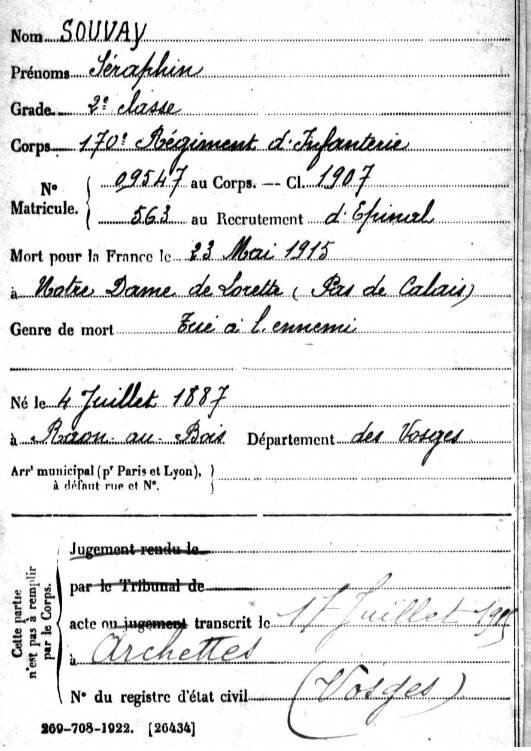 Nom SOUVAY
Prénoms Séraphin
Grade 2e classe
Corps 170e Régiment d'Infanterie
N° Matricule. 09547 au Corps. — Cl. 1907
563 au Recrutement d'Epinal
Mort pour la France le 23 Mai 1915
à Notre Dame de Lorette (Pas de Calais)
Genre de mort Tué à l'ennemi
Né le 4 Juillet 1887
à Raon-au-Bois Département des Vosges
Arrt municipal (pr Paris et Lyon),
à défaut rue et N°.
Cette partie n'est pas à remplir par le Corps.
Jugement rendu le
par le Tribunal de
acte ou jugement transcrit le 17 Juillet
à Archettes
N° du registre d'état civil (Vosges)
269-708-1922. [26434]